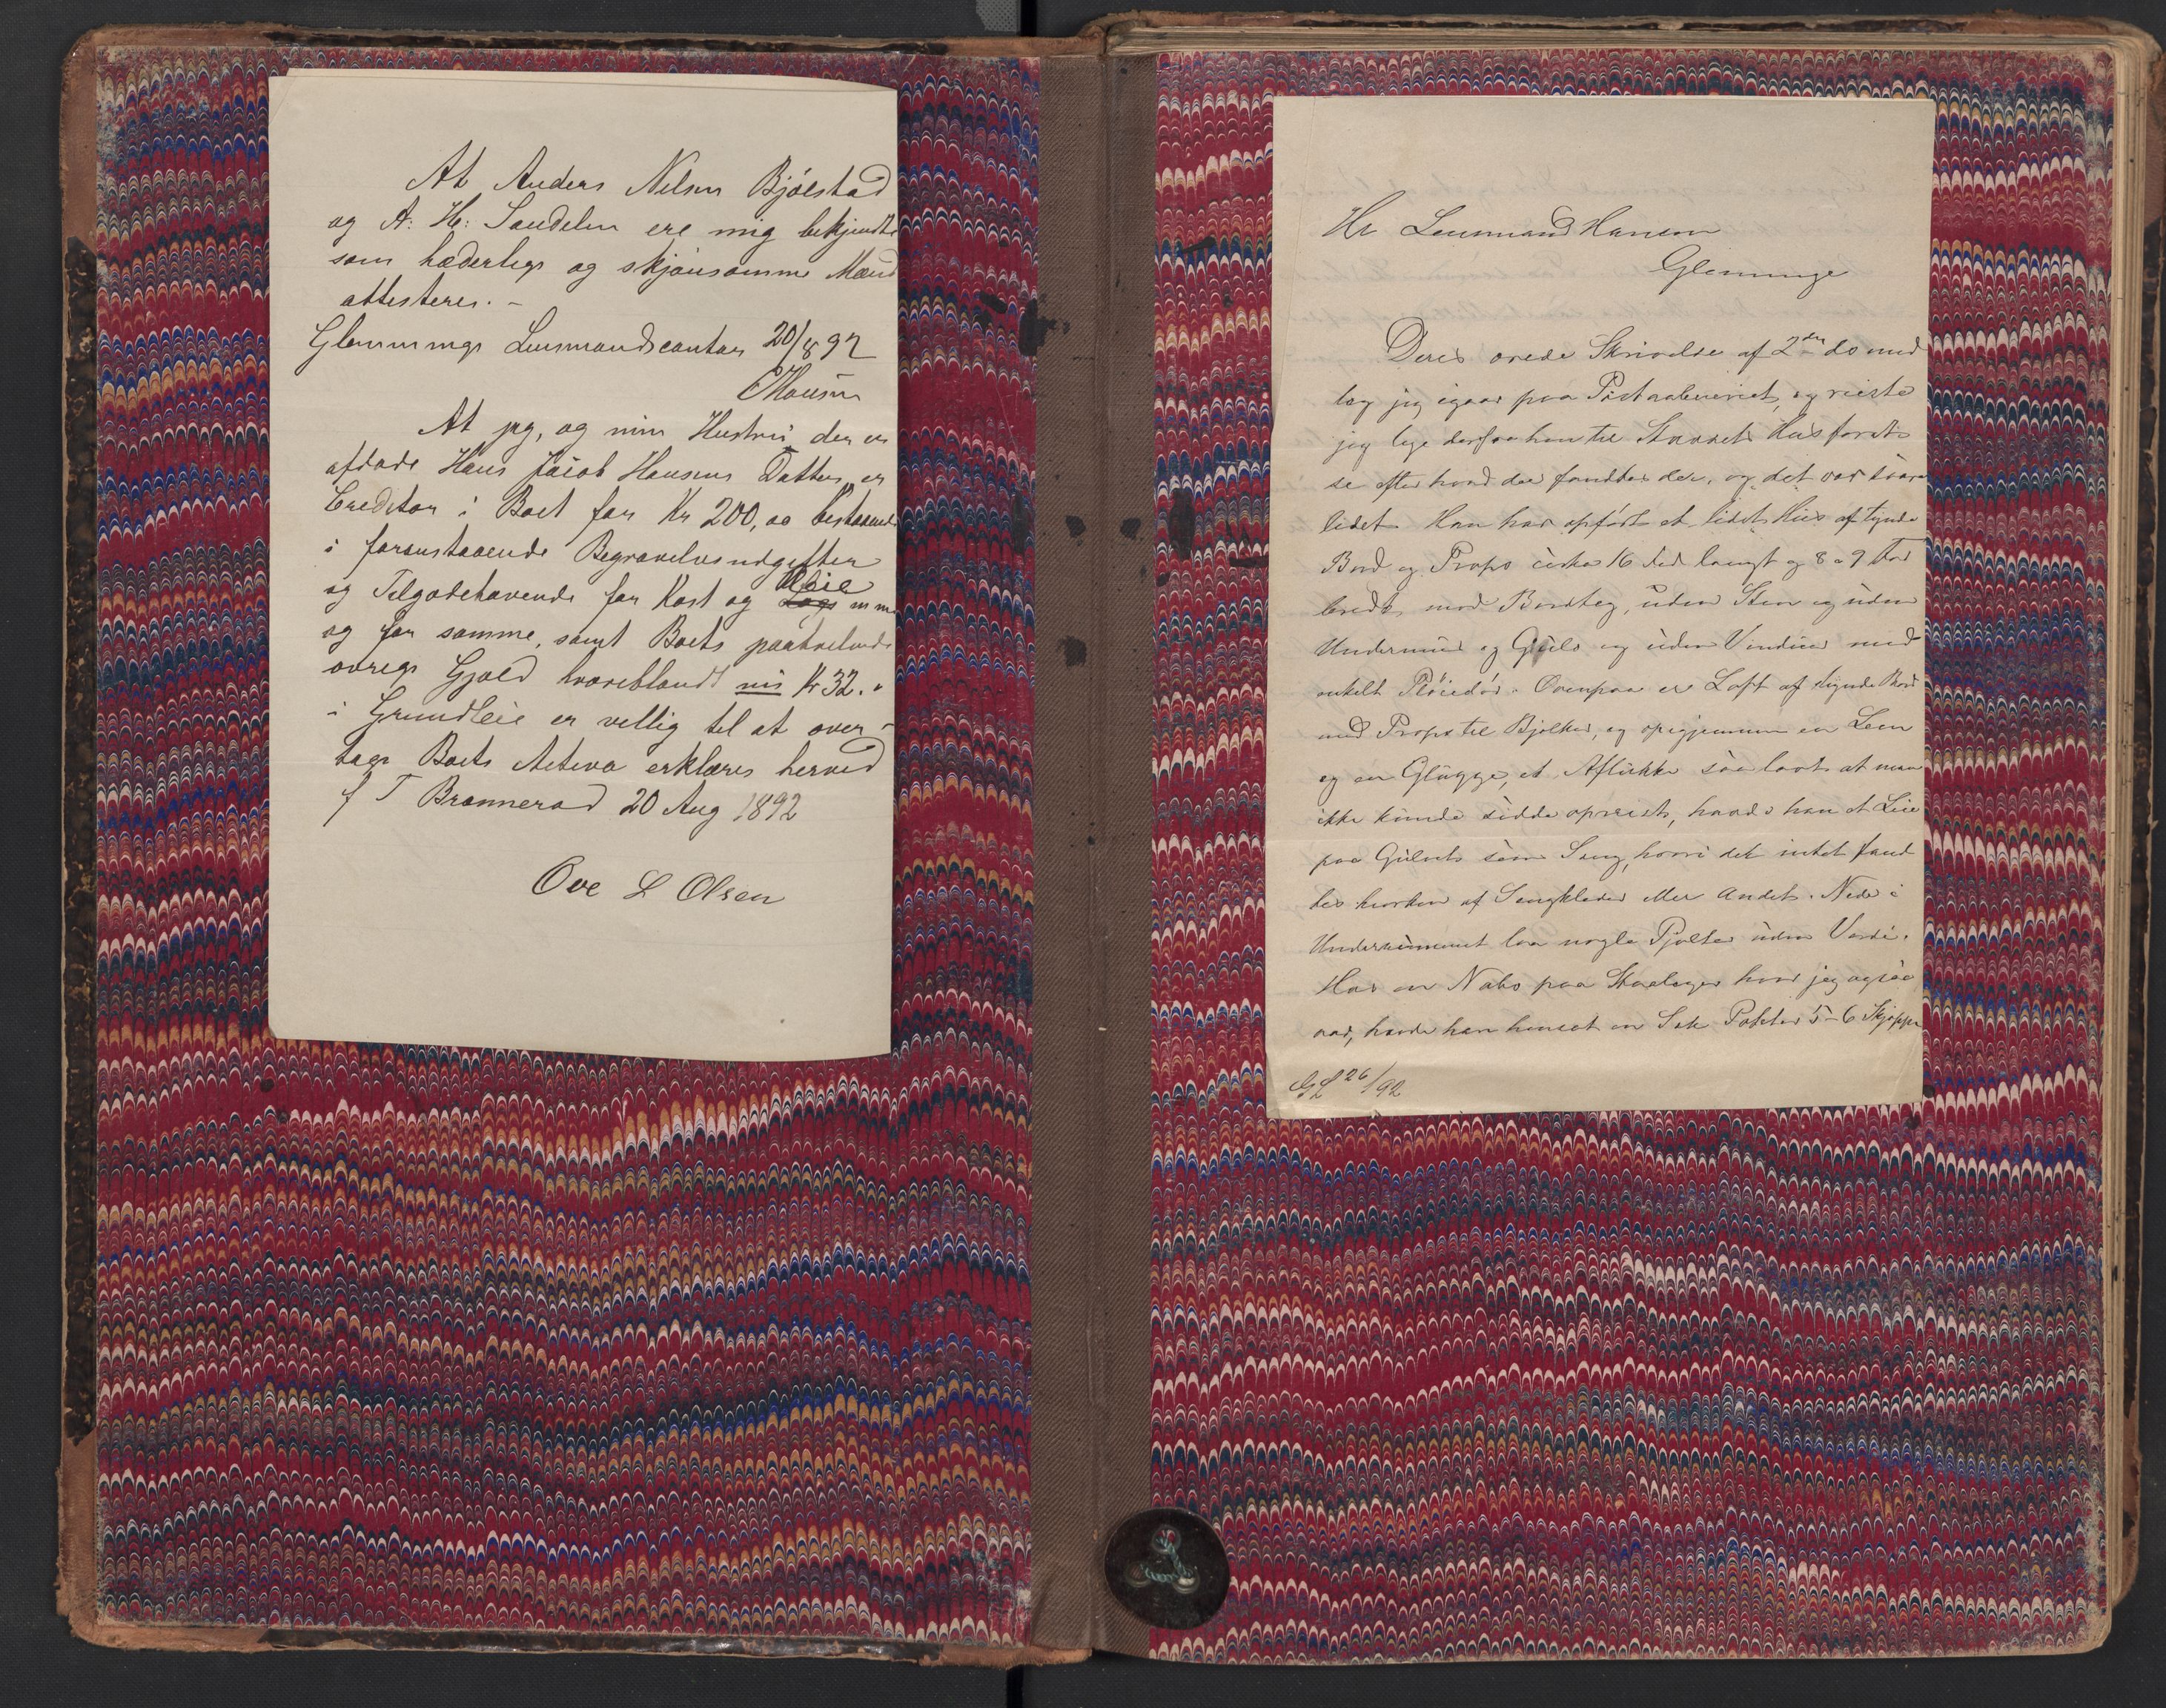 At Anders Nilsen Bjölstad
og A: H: Sandelin ere mig bekjendte
som hæderlige og skjönsomme Mænd
attesteres. -
Glemminge Lensmandscontor 20/8 92
CHansen
At jeg, og min Hustru der er
afdøde Hans Jacob Hansens Datter, er
Creditor i Boet for Kr 200,00 bestaaende
i foranstaaende Begravelsesudgifter
og Tilgodehavende for Kost og Pleie mm
og for samme, samt Boets paahvilende
øvrige Gjæld hvoriblandt Kr 32.
i Grundleie er villig til at over-
tage Boets Activa erklæres herved
p T Brønnerød 20 Aug 1892
Ove L Olsen
Hr Lensmand Hansen
Glemminge
Deres ærede Skrivelse af 2den ds mod
tog jeg igaar paa Postaaberiet, og reiste
jeg lige derfra hen til Huus for at
se efter hvad der fandtes der, og det var svært
lidet. Han har opført et lidet Huus af tynde
Bord og Props cirka 16 Fod langt og 8 a 9 Fod
bredt, med Bordtag, uden Sten og uden
Undermuur og Gulv og uden Vinduer med
enkelt Pløiedør. Ovenpaa er Loft af tynde Bord
med Props til Bjelker, og opigjennem en Lem
og en Glugge, et Aflukke saa lavt at man
ikke kunde sidde opreist, havde han et Leie
paa Gulvet som Seng, hvori det intet fand
tes hverken af Sengklæder eller Andet. Nede i
Underrummet laa nogle Pjalter uden Værdi.
Hos en Nabo paa hvor jeg ogsaa
var, havde han hensat en Sæk Poteter 5-6 Skjæpper
26/92